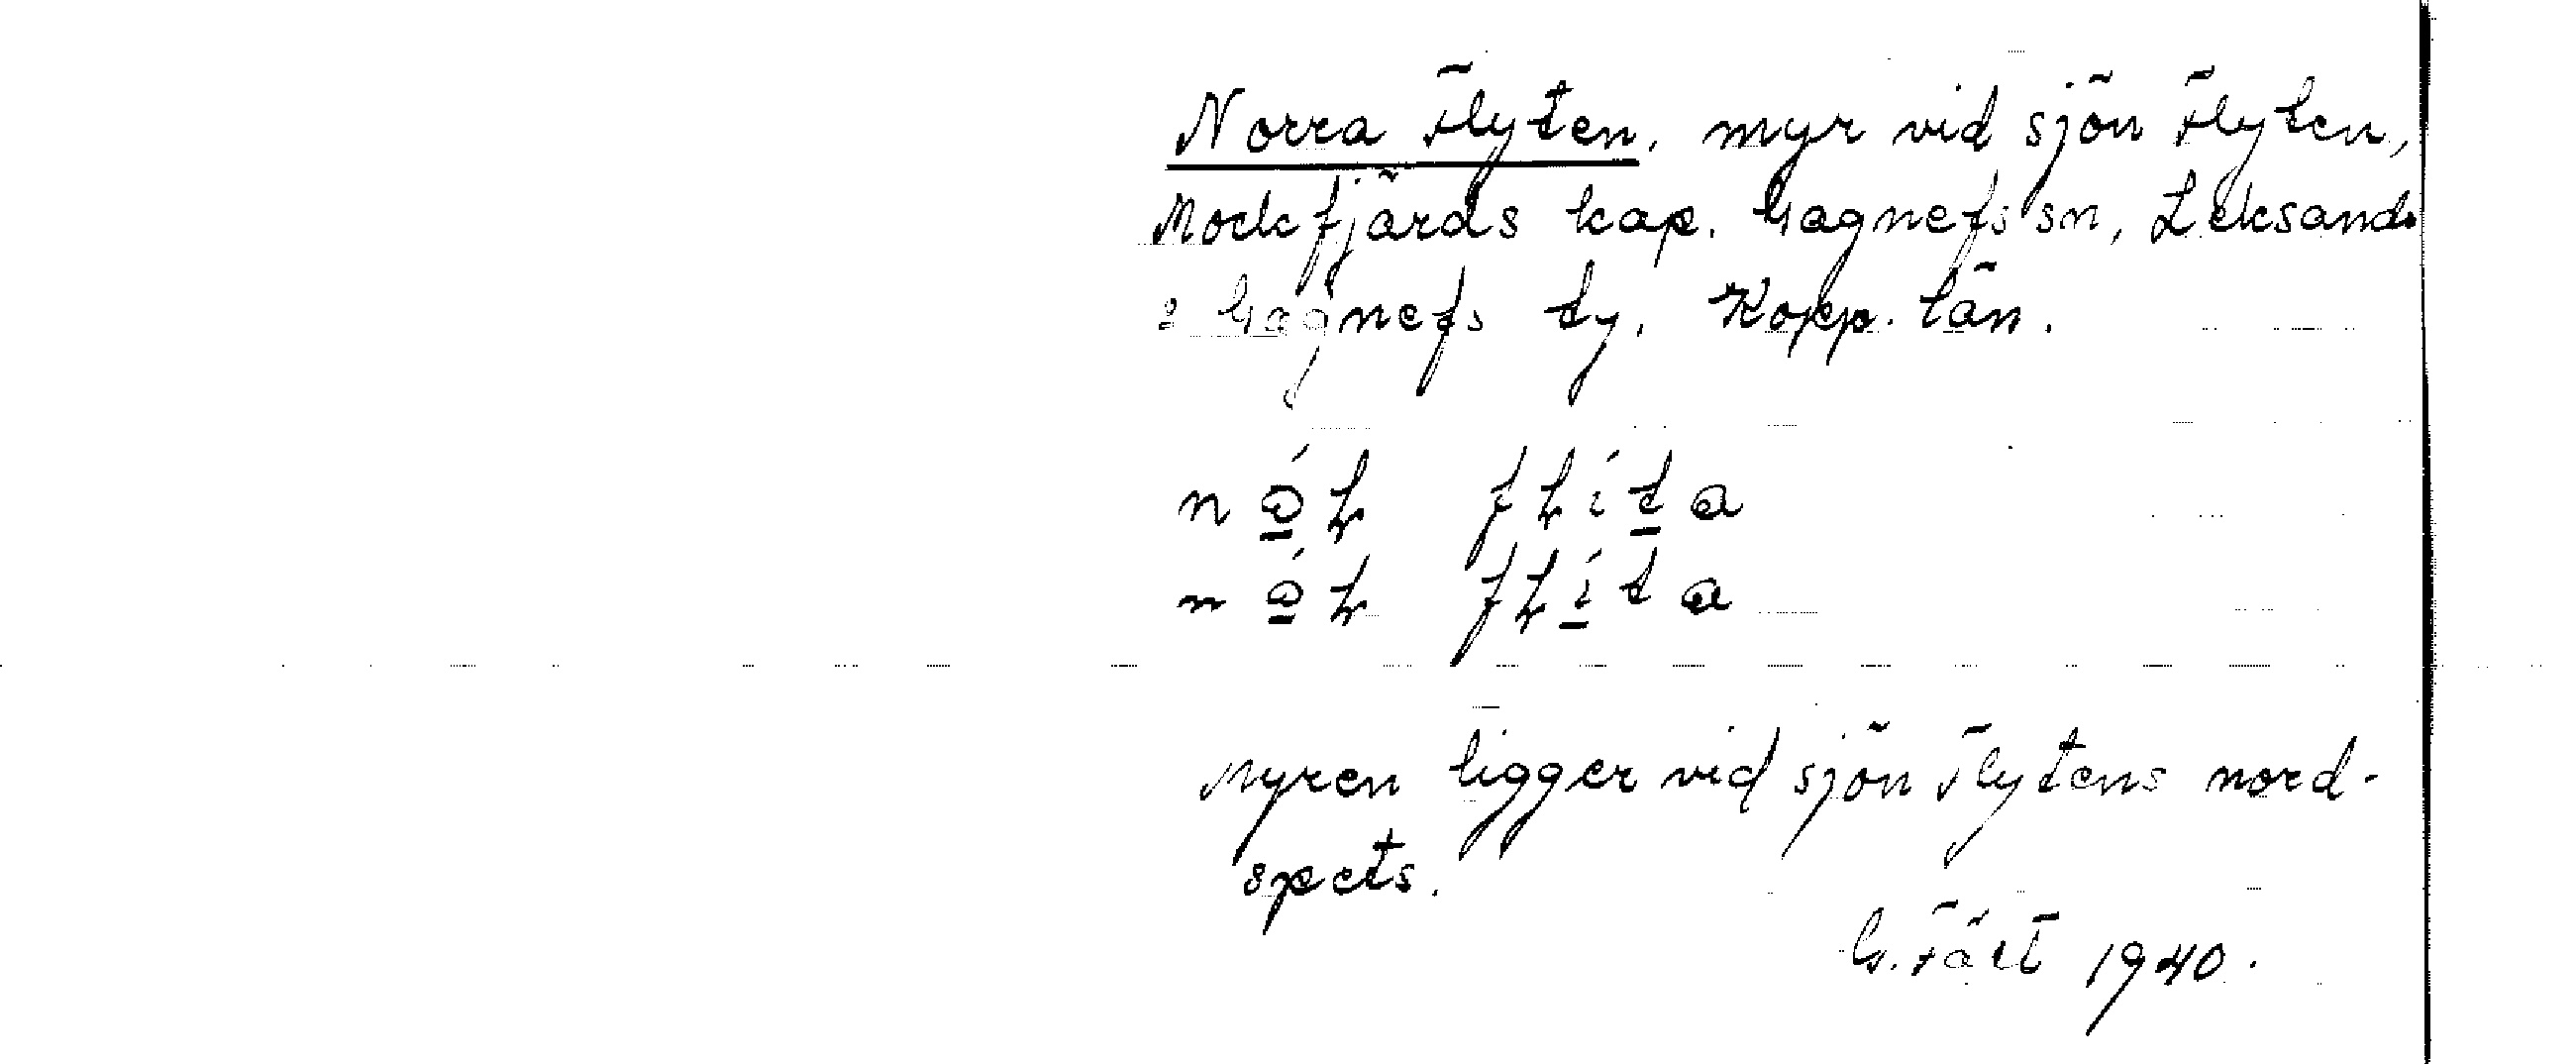 Norra Flyten, myr vid sjön Flyten,
Mockfjärds kap. Gagnefs sn, Leksands
o Gagnefs tg. Kopp. län.
Myren ligger vid sjön Flytens nord-
spets.
G. 1940.